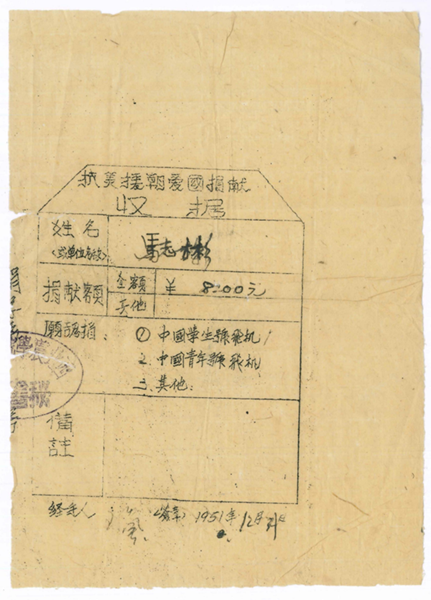 抗美援朝愛國捐献
收 据
姓名 馬志彬
捐献額 金額 ¥ 8.00元
其他
捐:
① 中國學生號飛机
2. 中國青年號飛机
三. 其他:
備註
經手人 1951年12月 日